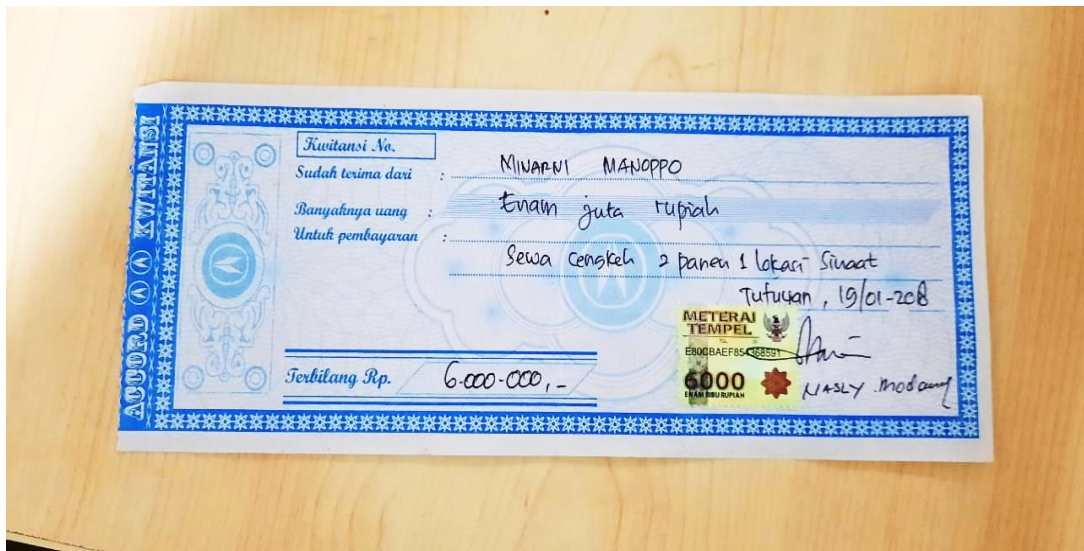 ACCORD KWITANSI
Kwitansi No.
Sudah terima dari : MINARNI MANOPPO
Banyaknya uang : Enam juta rupiah
Untuk pembayaran :
Sewa cengkeh 2 panen 1 lokasi Sinaat
Tutuyan, 19/01-2018
METERAI
TEMPEL
E80CBAEF854368591
6000
ENAM RIBU RUPIAH
Terbilang Rp. 6.000.000,-
NASLY